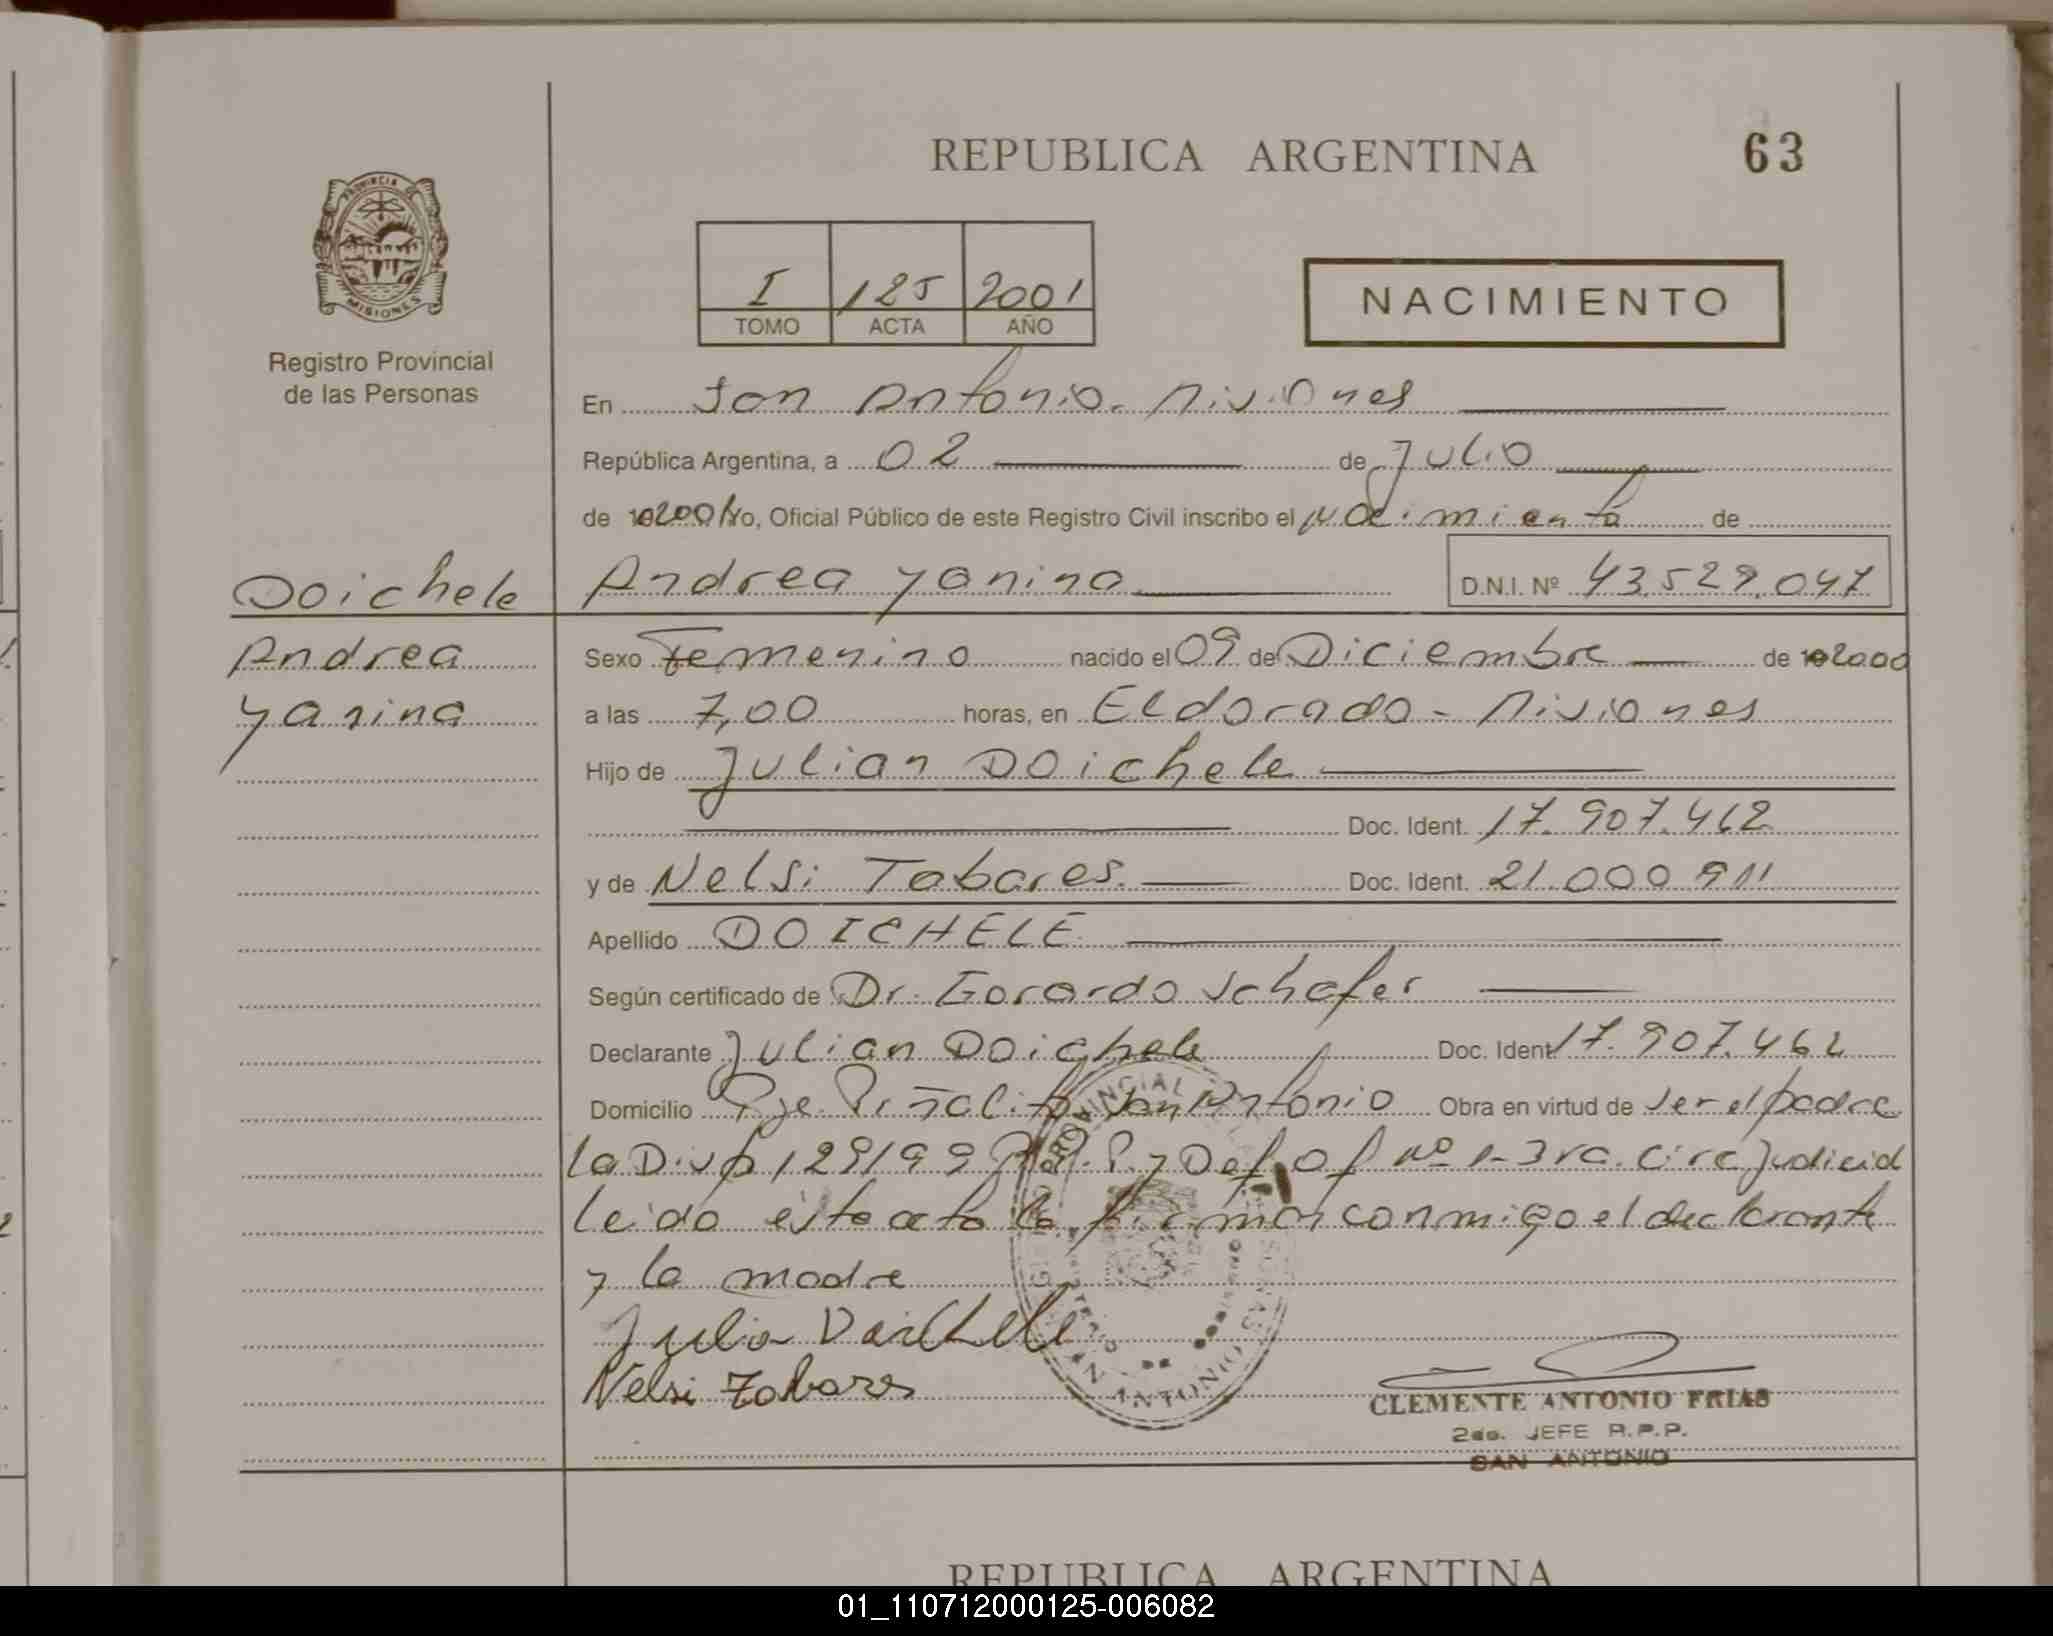 REPUBLICA ARGENTINA
63
PROVINCIA DE MISIONES
Registro Provincial
de las Personas
I 125 2001
TOMO ACTA AÑO
NACIMIENTO
En San Antonio. Misiones
República Argentina, a 02 de Julio
de 2001 Yo, Oficial Público de este Registro Civil inscribo el nacimiento de
Doichele Andrea Yanina D.N.I. Nº 43.529.047
Andrea
Yanina
Sexo Femenino nacido el 09 de Diciembre de 2000
a las 7,00 horas, en Eldorado - Misiones
Hijo de Julian Doichele
Doc. Ident. 17.907.462
y de Nelsi Tabares. Doc. Ident. 21.000 911
Apellido DOICHELE
Según certificado de Dr. Gerardo Schafer
Declarante Julian Doichele Doc. Ident 17.907.462
Domicilio Pje. Piñalito San Antonio Obra en virtud de ser el padre
la Disp 129/99 R.P.P. y Def. Of Nº 1-3ra. Circ Judicial
leido este acta la firman conmigo el declarante
y la madre
Nelsi Tabares
CLEMENTE ANTONIO FRIAS
2do. JEFE R.P.P.
SAN ANTONIO
REPUBLICA ARGENTINA
01_110712000125-006082